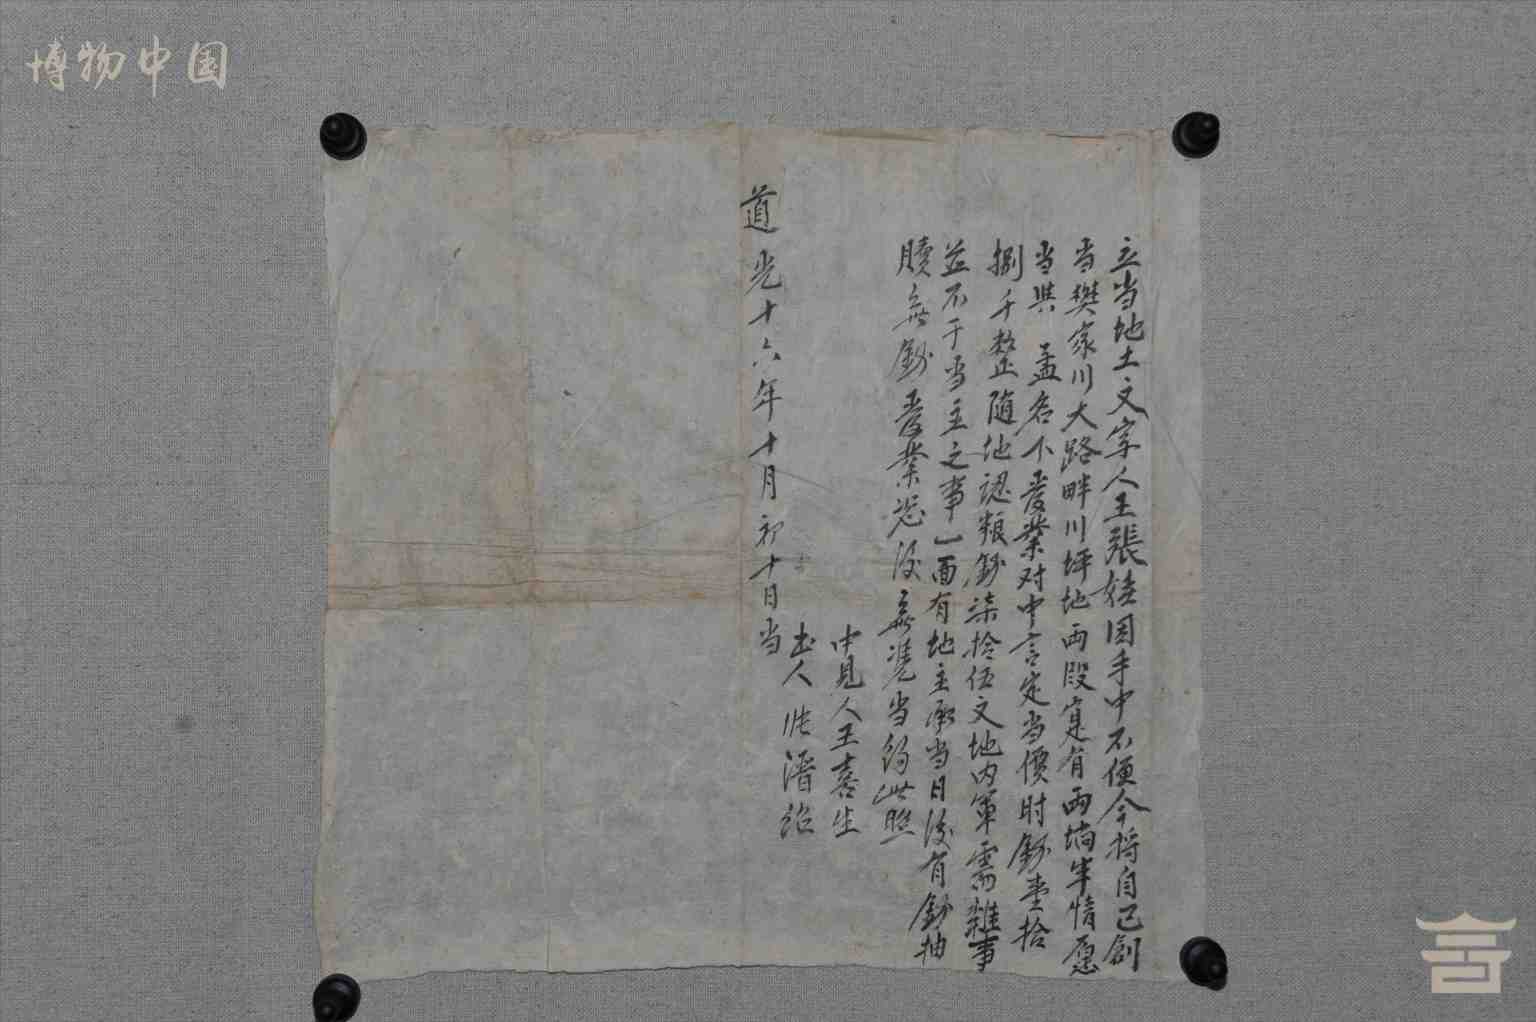 博物中国
立当地土文字人王張娃因手中不便今将自己創
当樊家川大路畔川坪地両段寔有両垧半情愿
当與 孟名下受業对中言定当價时錢壹拾
捌千整随地認粮錢柒拾伍文地内軍需雜事
並不干当主之事一面有地主承当日後有錢抽
贖無錢受業恐後無凴当約此照
中見人王喜生
書人
道光十六年十月初十日当